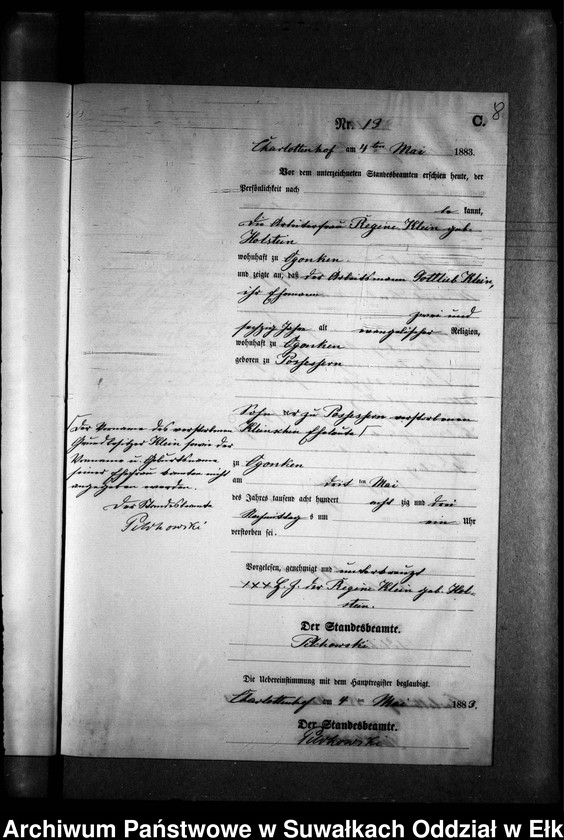 8
C.
Nr. 19
Charlottenhof am 4ten Mai 1883.
Vor dem unterzeichneten Standesbeamten erschien heute, der
Persönlichkeit nach
be kannt,
die Arbeiterfrau Regine Klein geb.
Holstein
wohnhaft zu Ogonken
und zeigte an, daß der Arbeitsmann Gottlieb Klein,
ihr Ehemann
zwei und
sechzig Jahre alt evangelischer Religion,
wohnhaft zu Ogonken
geboren zu Possessern
Sohn der zu Possessern verstorbenen
Kleinschen Eheleute
zu Ogonken
am dritten Mai
des Jahres tausend acht hundert acht zig und drei
Nachmittags um ein Uhr
verstorben sei.
Vorgelesen, genehmigt und unterkreuzt
+++ H. Z. der Regine Klein geb. Hol-
stein.
Der Standesbeamte.
Pilchowski
Die Uebereinstimmung mit dem Hauptregister beglaubigt.
Charlottenhof am 4ten Mai 1883.
Der Standesbeamte.
Pilchowski
Der Vorname des verstorbenen
Grundbesitzer Klein sowie der
Vorname u. Geburtsname
seiner Ehefrau konnten nicht
angegeben werden.
Der Standesbeamte
Pilchowski
Archiwum Państwowe w Suwałkach Oddział w Ełk